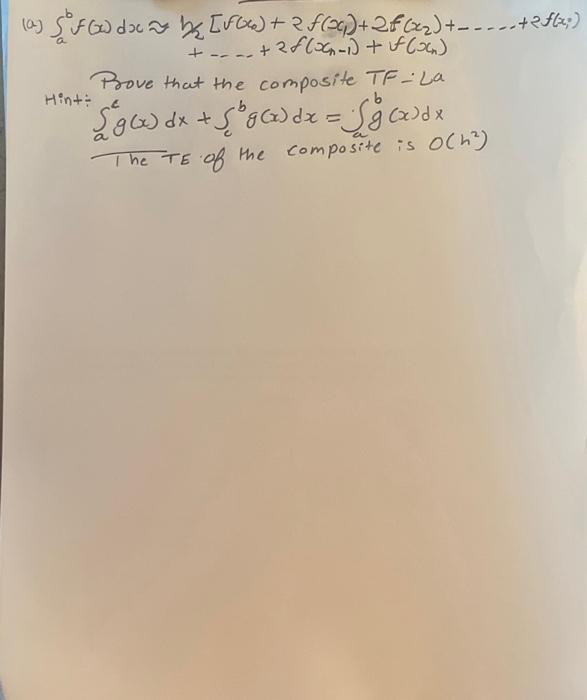 (a) ∫ₐᵇ f(x) dx ≈ h/2 [f(x₀) + 2f(x₁) + 2f(x₂) + ----- + 2f(xᵢ)
+ ---- + 2f(xₙ₋₁) + f(xₙ)
Prove that the composite TF - La
Hint:
∫ₐᶜ g(x) dx + ∫꜀ᵇ g(x) dx = ∫ₐᵇ g(x) dx
The TE of the composite is O(h²)